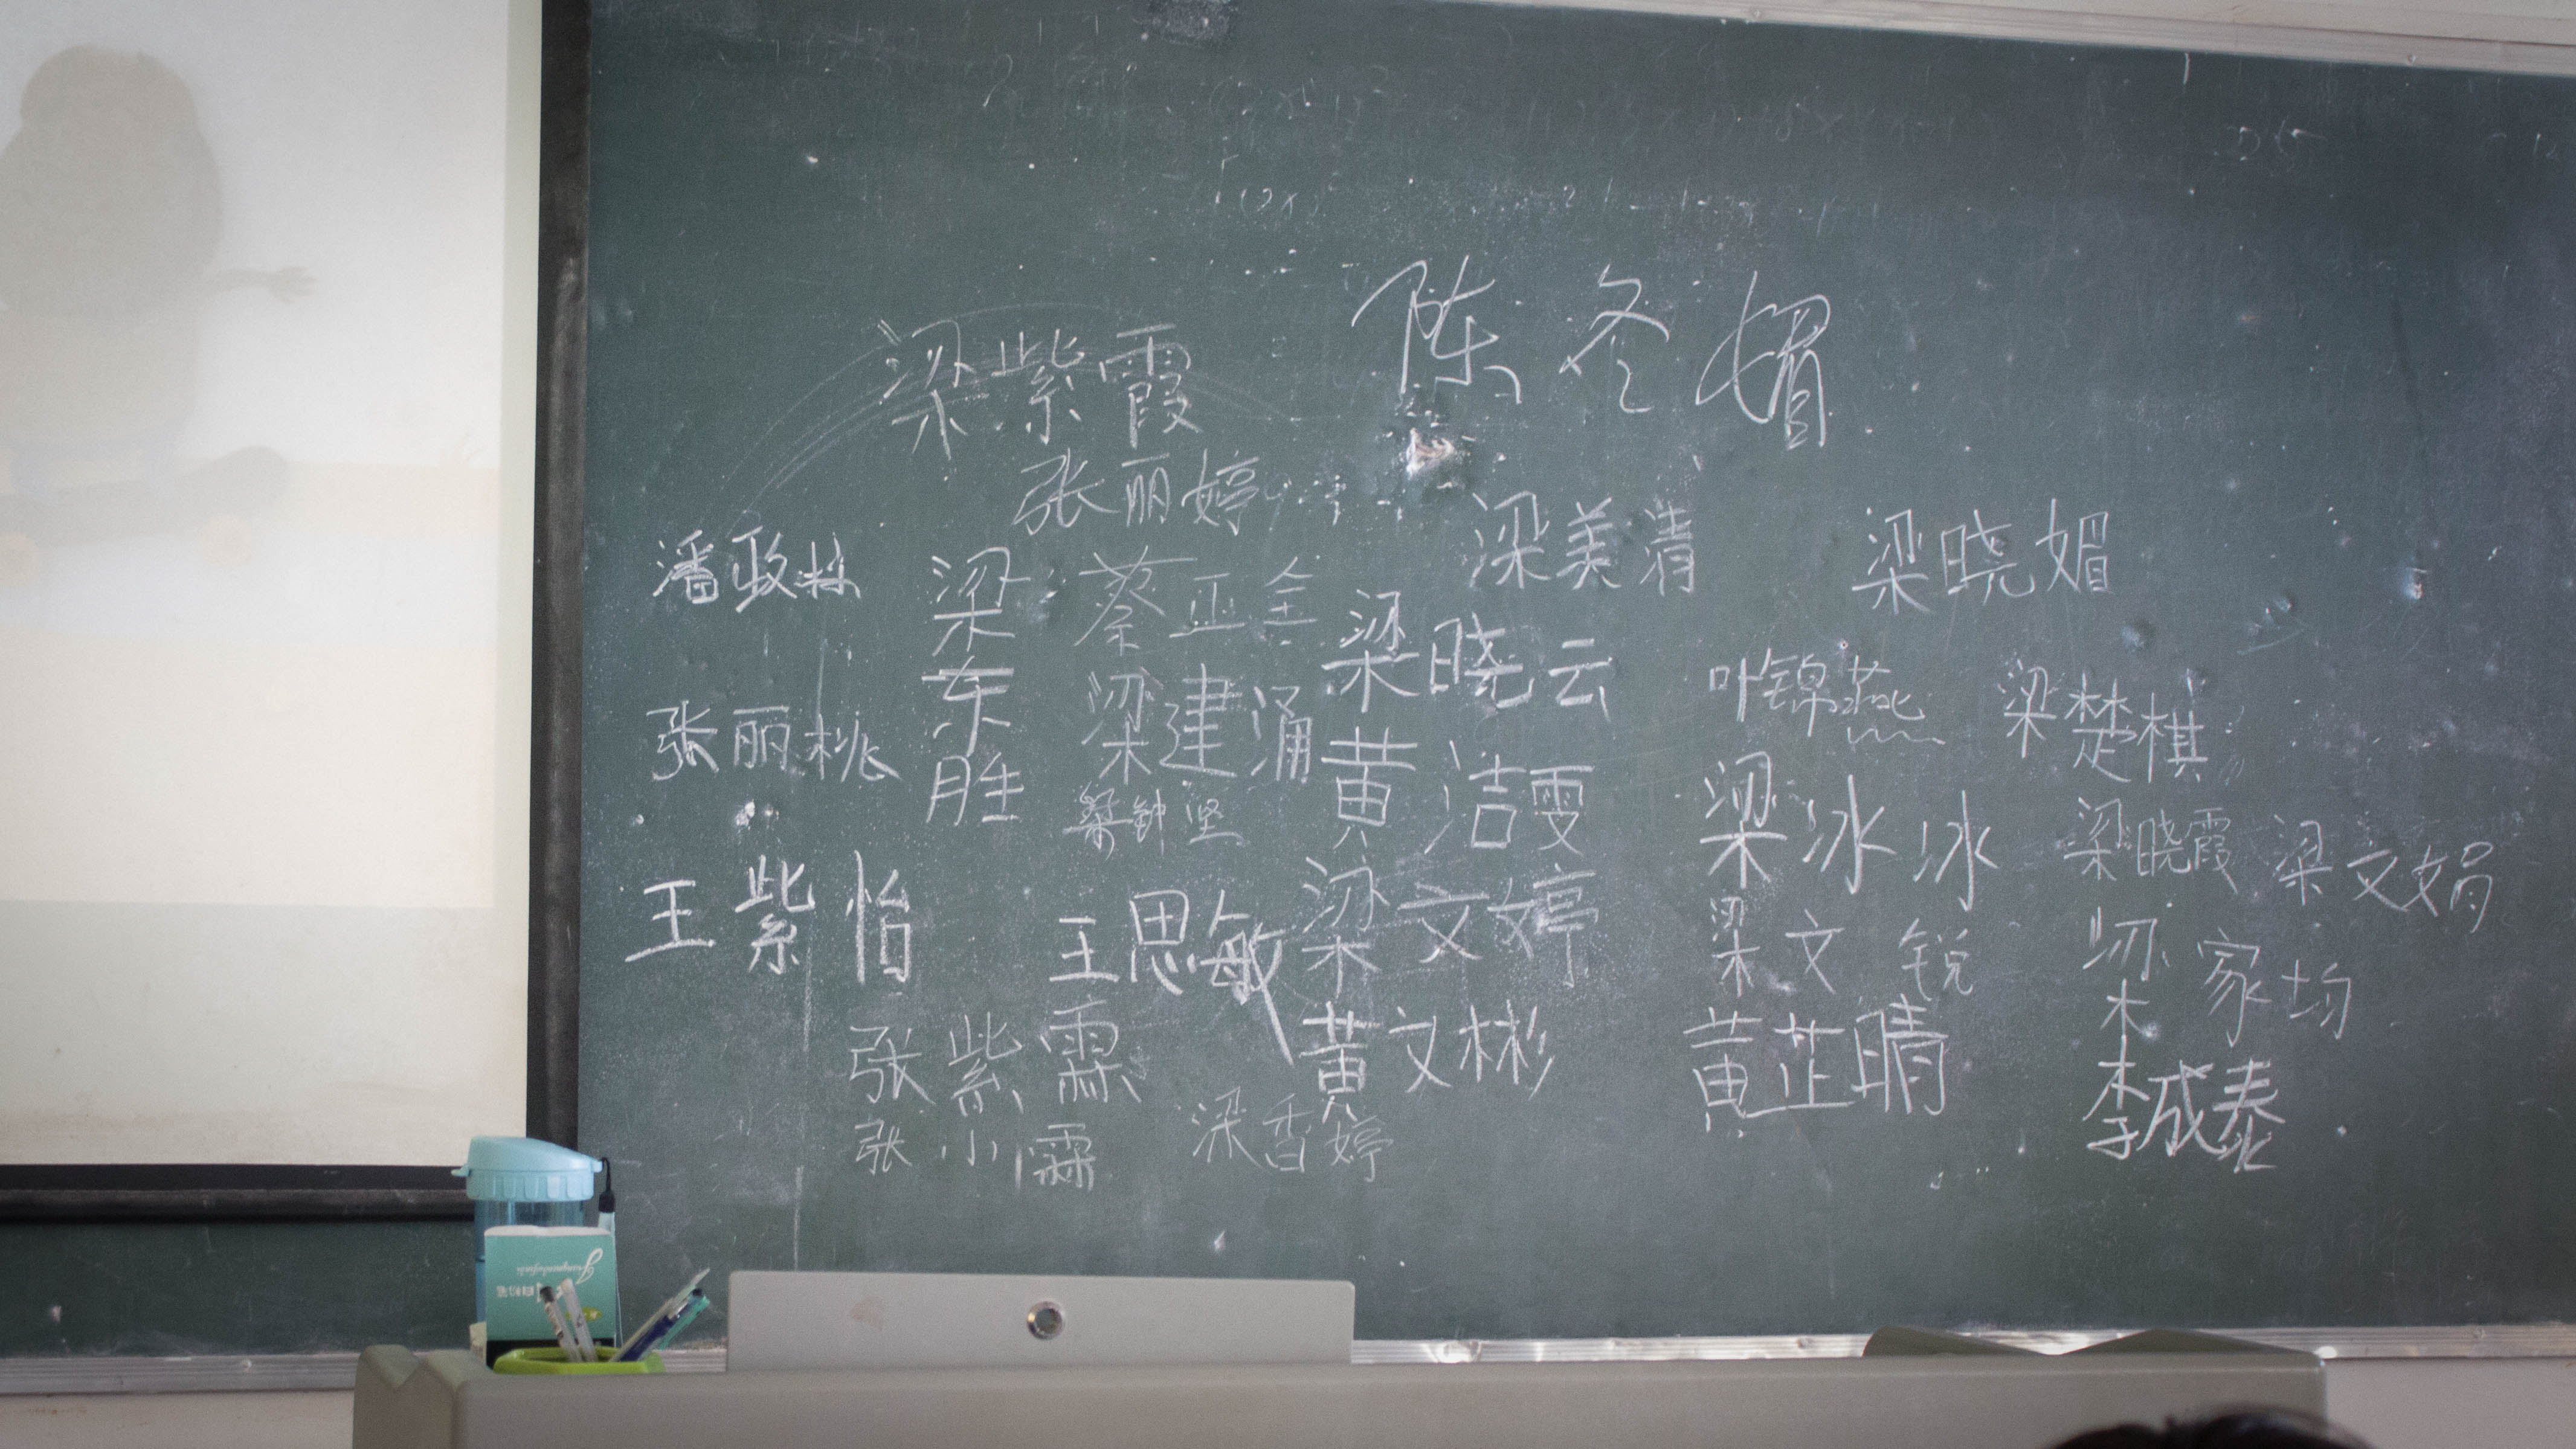 陈冬媚
梁紫霞
张丽婷
梁美清
梁晓媚
潘政林
梁东胜
蔡正金
梁晓云
叶锦燕
梁楚棋
张丽桃
梁建涌
黄洁雯
梁冰冰
梁钟坚
梁晓霞
梁文娟
王紫怡
王思敏
梁文婷
梁文锐
梁家均
张紫霖
黄文彬
黄芷晴
李成泰
张小霖
梁香婷